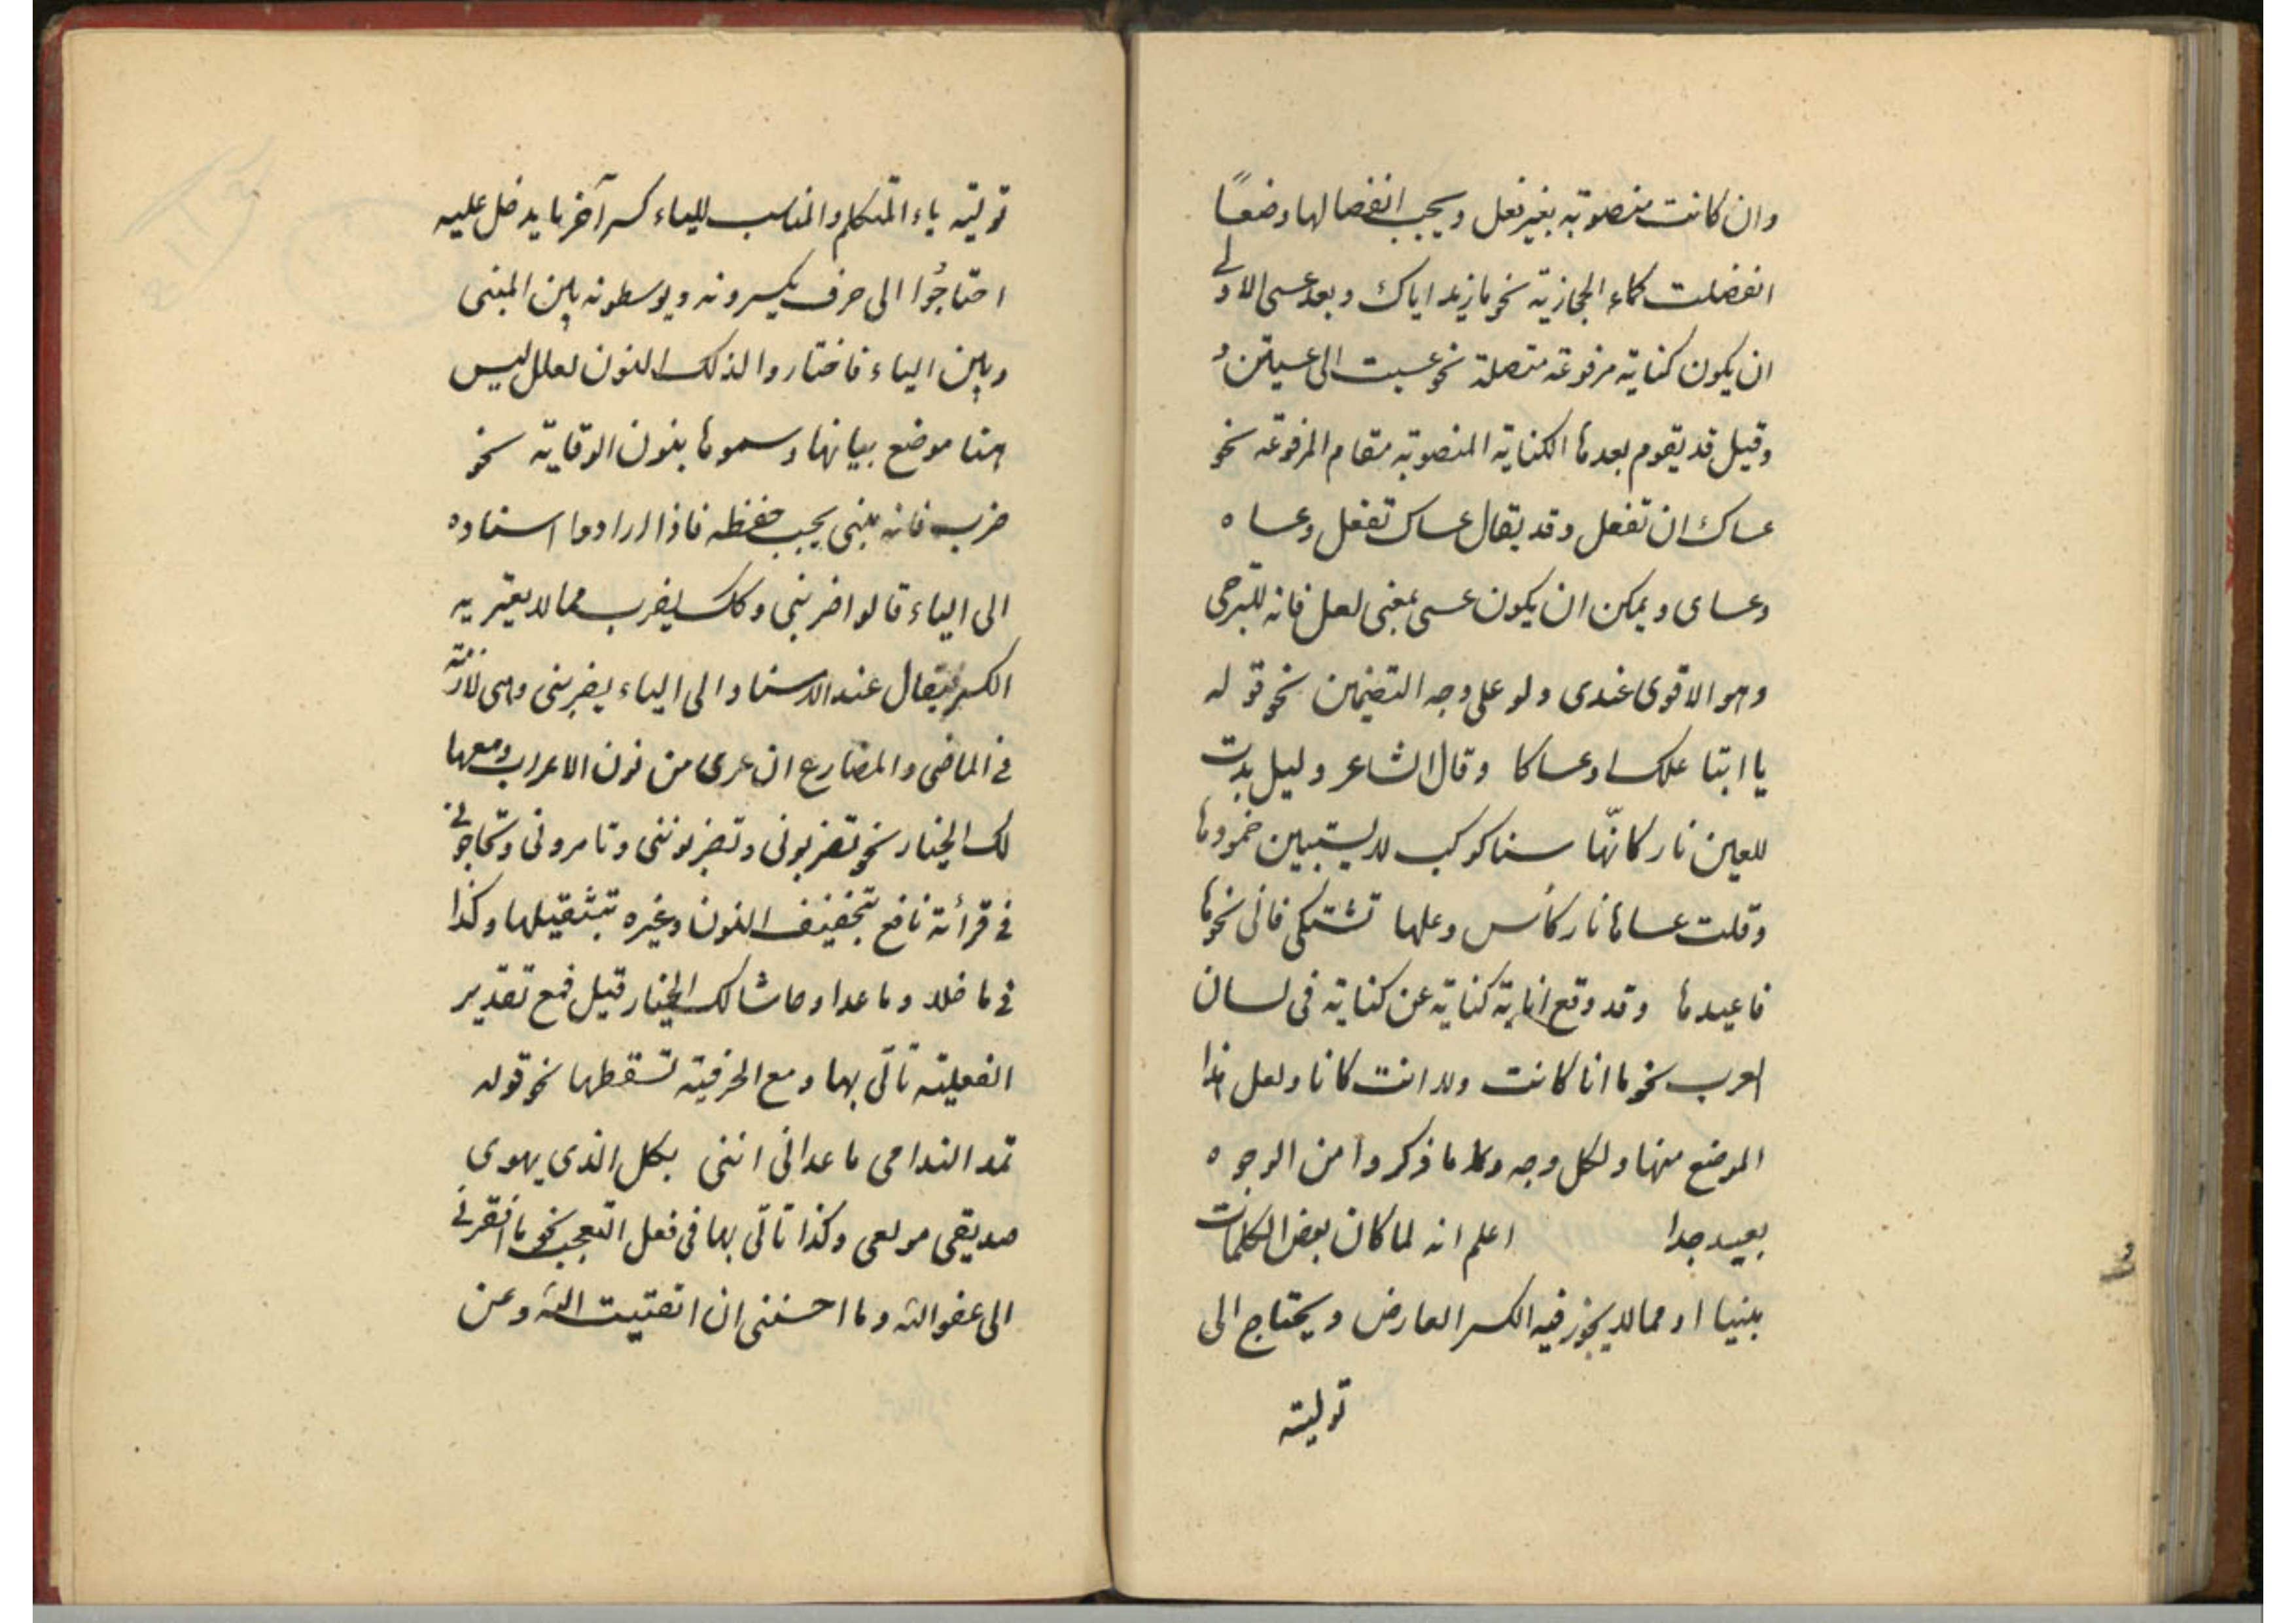 وان كانت منصوبة بغير فعل ويجب انفصالها وضعاً
انفصلت كماء الحجازية نحو ما زيد اياك وبعد عسى الاولى
ان يكون كناية مرفوعة متصلة نحو عسيت الى عسيتن و
وقيل قد يقوم بعدها الكناية المنصوبة مقام المرفوعة نحو
عساك ان تفعل وقد يقال عساك تفعل وعساه
وعساى ويمكن ان يكون عسى بمعنى لعل فانه للترجى
وهو الاقوى عندى ولو على وجه التضمين نحو قوله
يا ابتا علك او عساكا وقال الشاعر وليل بدت
للعين نار كانّها سنا كوكب لا يستبين خمودها
وقلت عساها نار كأس وعلها تشتكى فاتى نحوها
فاعيدها وقد وقع انابة كناية عن كناية فى لسان
العرب نحو ما انا كانت ولا انت كانا ولعل هذا
الموضع منها ولكل وجه وكلما ذكروا من الوجوه
بعيد جدا اعلم انه لما كان بعض الكلمات
مبنيا او مما لا يجوز فيه الكسر العارض ويحتاج الى
توليته
توليته ياء المتكلم والمناسب للياء كسر آخر ما يدخل عليه
احتاجُوا الى حرف يكسرونه ويوسطونه بين المبنى
وبين الياء فاختاروا لذلك النون لعلل ليس
هنا موضع بيانها وسموها بنون الوقاية نحو
ضرب فانه مبنى يجب حفظه فاذا ارادوا اسناده
الى الياء قالوا ضربنى وكك يضرب مما لا يعتريه
الكسر فيقال عند الاسناد الى الياء يضربنى وهى لازمة
فى الماضى والمضارع ان عرى من نون الاعراب ومعها
لك الخيار نحو تضربونى وتضربوننى وتامرونى وتحاجونى
فى قرأئة نافع بتخفيف النون وغيره بتثقيلها وكذا
فى ما خلا وما عدا وحاشا لك الخيار قيل فمع تقدير
الفعلية تأتى بها ومع الحرفية تسقطها نحو قوله
تمد الندامى ما عدانى اننى بكل الذى يهوى
صديقى مولعى وكذا تأتى بها فى فعل التعجب نحو ما افقرنى
الى عفو الله وما احسننى ان اتقيت الله وعن